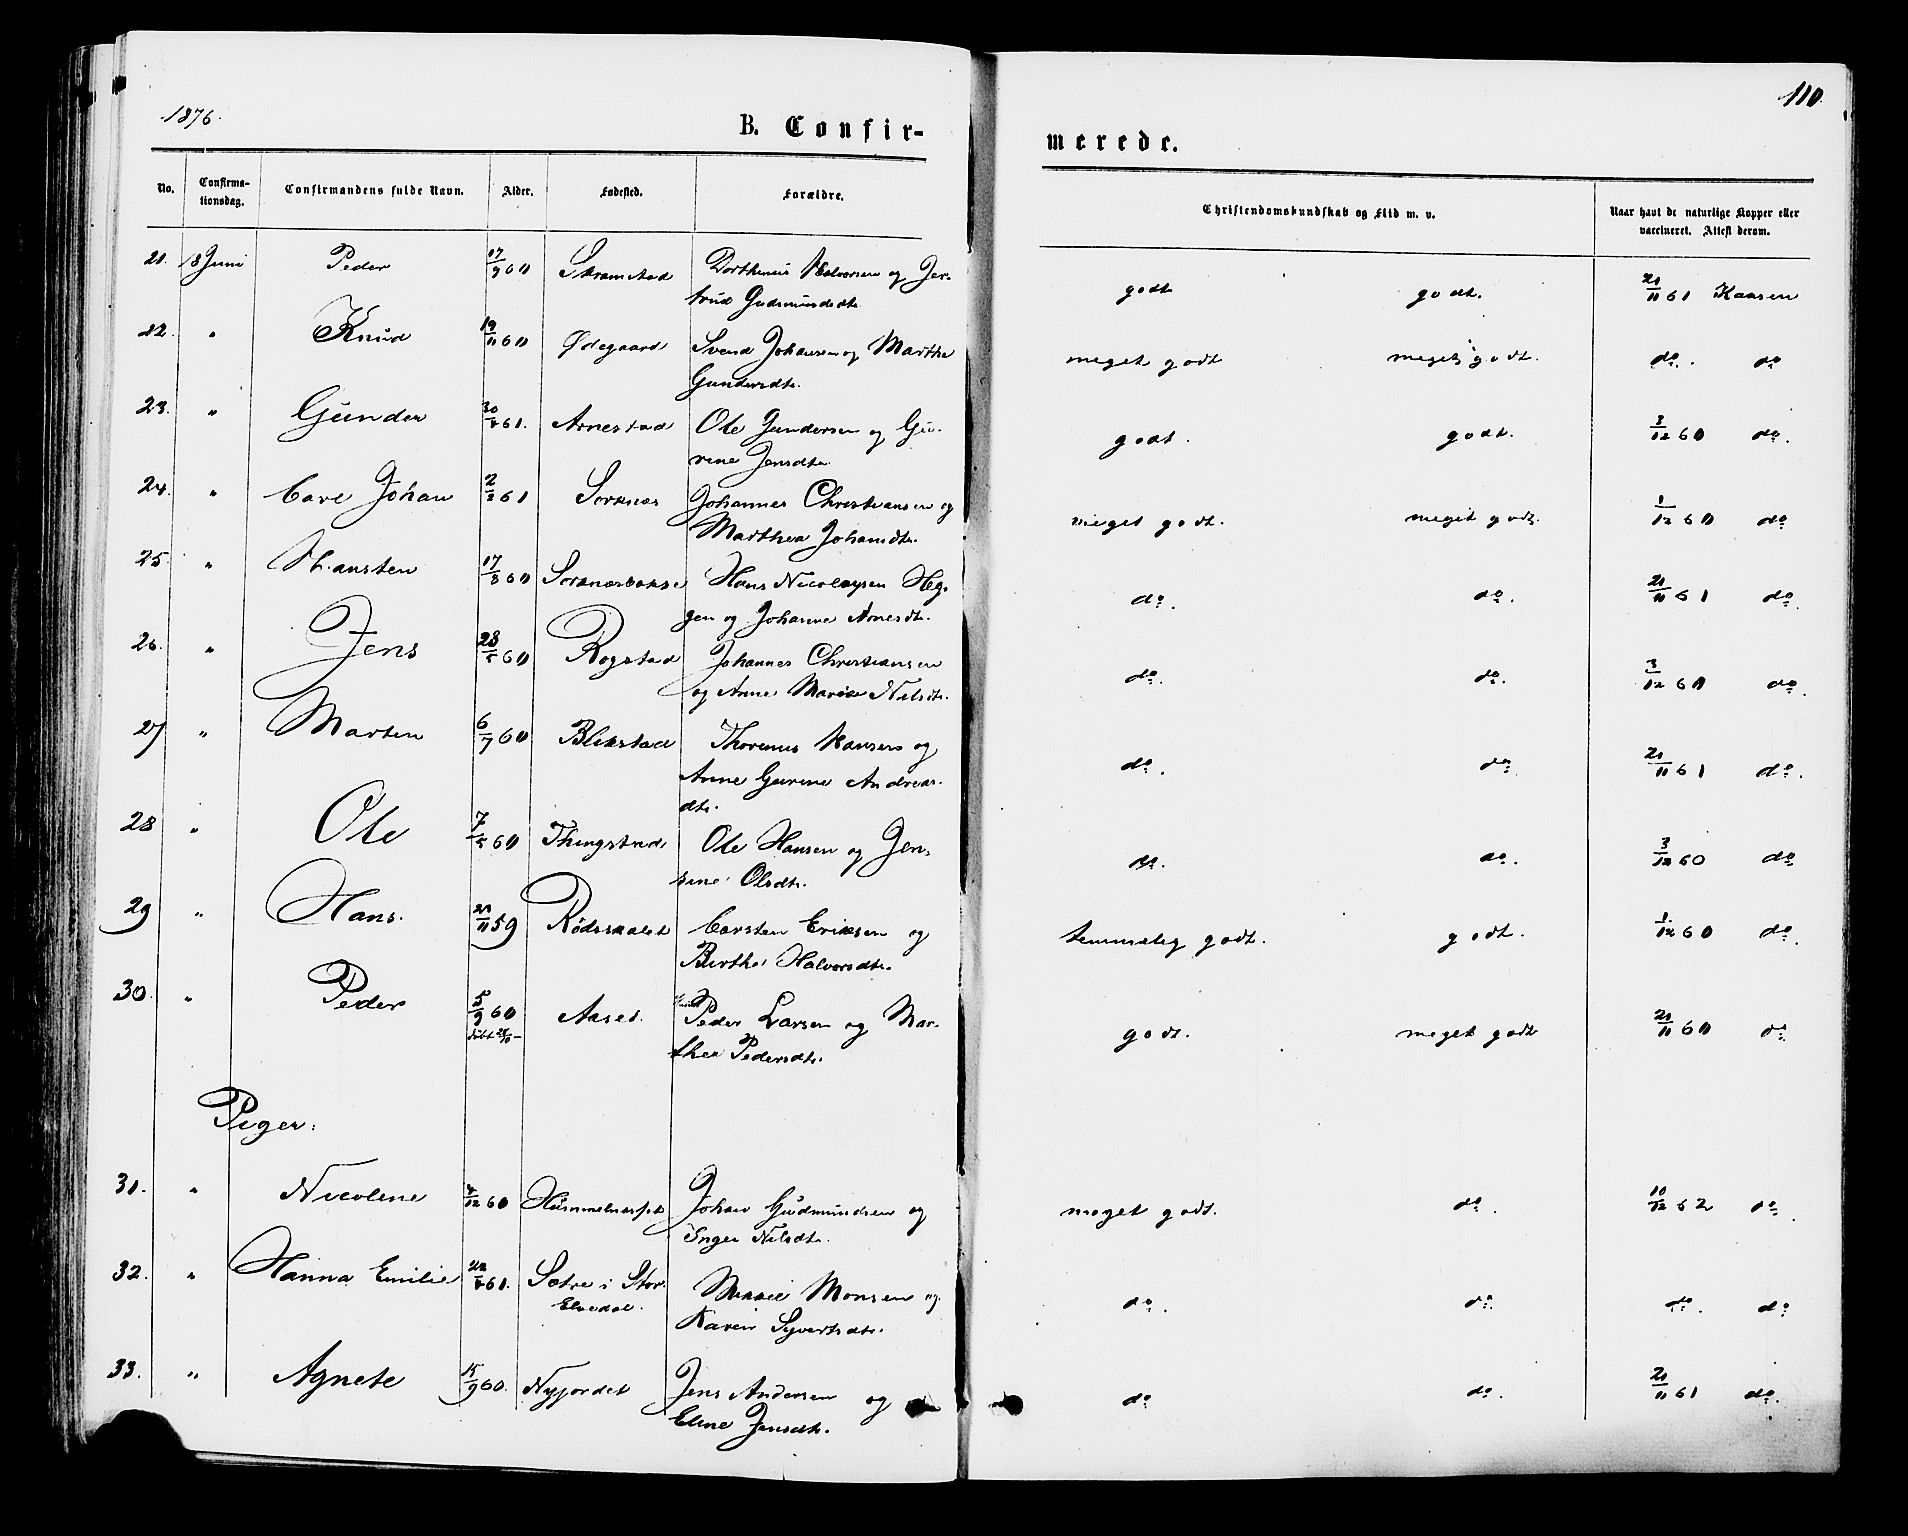 1876.
110.
B. Confir-
merede.
No.
Confirma-
tionsdag.
Confirmandens fulde Navn.
Alder.
Fødested.
Forældre.
Christendomskundskab og Flid m. v.
Naar havt de naturlige Kopper eller
vaccineret. Attest derom.
21. 18 Juni Peder 17/9 60 Skramstad Dorthenius Halvorsen og Jer-
trud Gudmundsdt. godt godt. 21/11 61 Kaasen
22. " Knud 19/11 60 Ødegaard Svend Johansen og Marthe
Gundersdt. meget godt meget godt. do. do
23. " Gunder 30/ 61. Arnestad Ole Gundersen og Gu-
rine Jensdt. godt. godt. 3/12 60 do.
24. " Carl Johan 2/2 61 Sorknes Johannes Christiansen og
Marthea Johansdt. meget godt. meget godt. 1/12 60 do
25. " Hansten 17/8 60 Hans Nicolaysen Heg-
gen og Johanne Arnesdt. do. do. 21/11 61 do.
26. " Jens 28/5 60 Rogstad Johannes Christiansen
og Anne Marie Nilsdt. do. do. 3/12 60 do.
27 " Marten 6/7 60 Blikstad Thorenus Hansen og
Anne Gurine Andreas-
dt. do. do 21/11 61 do.
28 " Ole 7/5 60 Thingstad Ole Hansen og Jen-
sine Olsdt. do. do. 3/12 60 do
29 " Hans. 21/11 59 Rødsmalet Carsten Eriksen og
Birthe Halvorsdt. temmelig godt. godt. 1/12 60 do.
30. " Peder 5/9 60 Aaset. Peder Larsen og Mar-
thea Pedersdt. godt. meget godt 21/11 60 do
døbt
Piger:
31. " Nicoline 4/12 60 Johan Gudmundsen og
Inger Nilsdt. meget godt. do. 10/12 62 do.
32. " Hanna Emilie 22/ 61. Sætre i Stor-
Elvedal. Mikael Monsen og
Karen Syvertsdt. do. do. do. do
33. " Agnete 15/9 60. Nyjordet Jens Andersen og
Eline Jensdt. do do. 21/11 61 do.